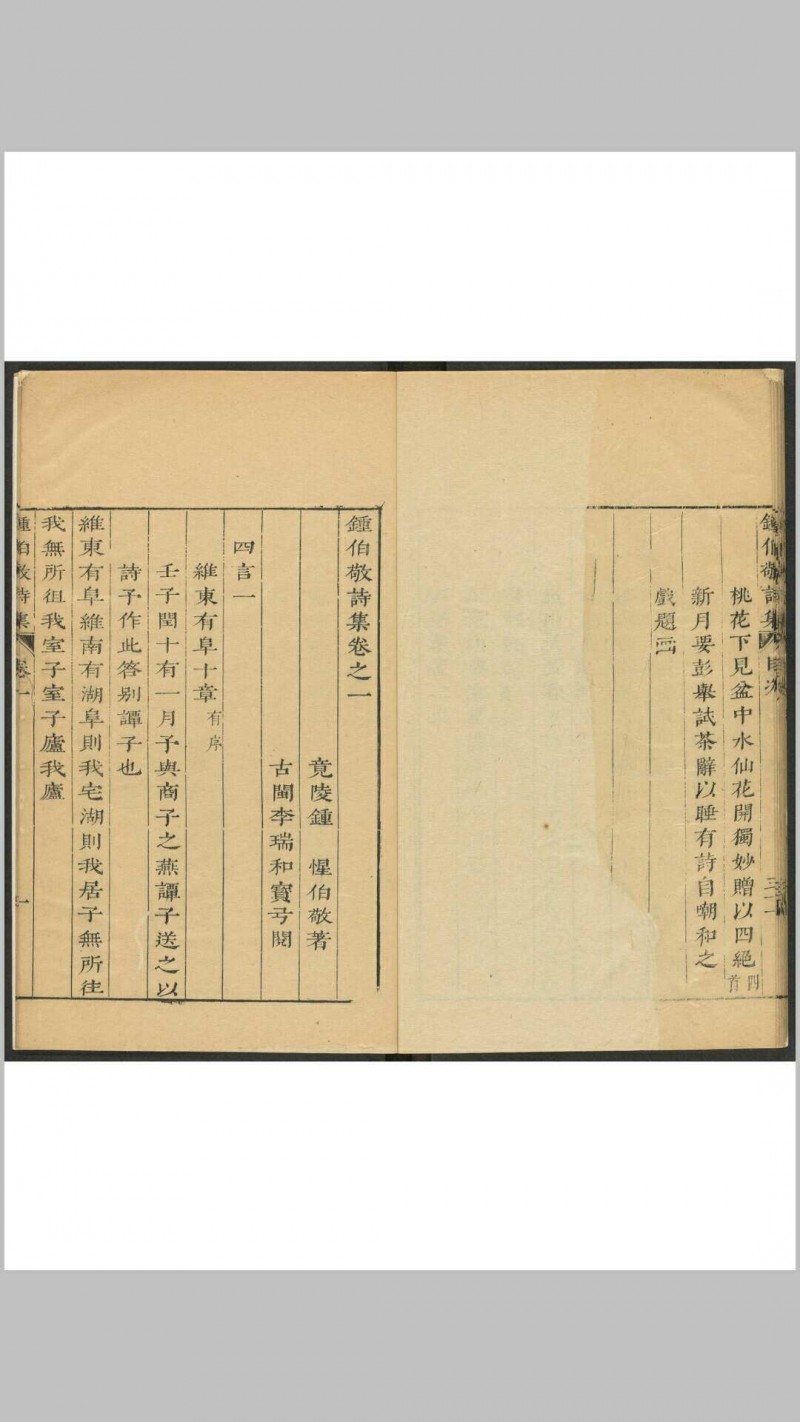 鍾伯敬詩集 目次
桃花下見盆中水仙花開獨妙贈以四絕四首
新月要彭舉試茶辭以睡有詩自嘲和之
戲題畫
鍾伯敬詩集卷之一
竟陵鍾 惺伯敬著
古閩李瑞和寶弓閱
四言一
維東有阜十章有序
壬子閏十有一月予與商子之燕譚子送之以
詩予作此答别譚子也
維東有阜維南有湖阜則我宅湖則我居子無所往
我無所徂我室子室子廬我廬
鍾伯敬詩集 卷一 一